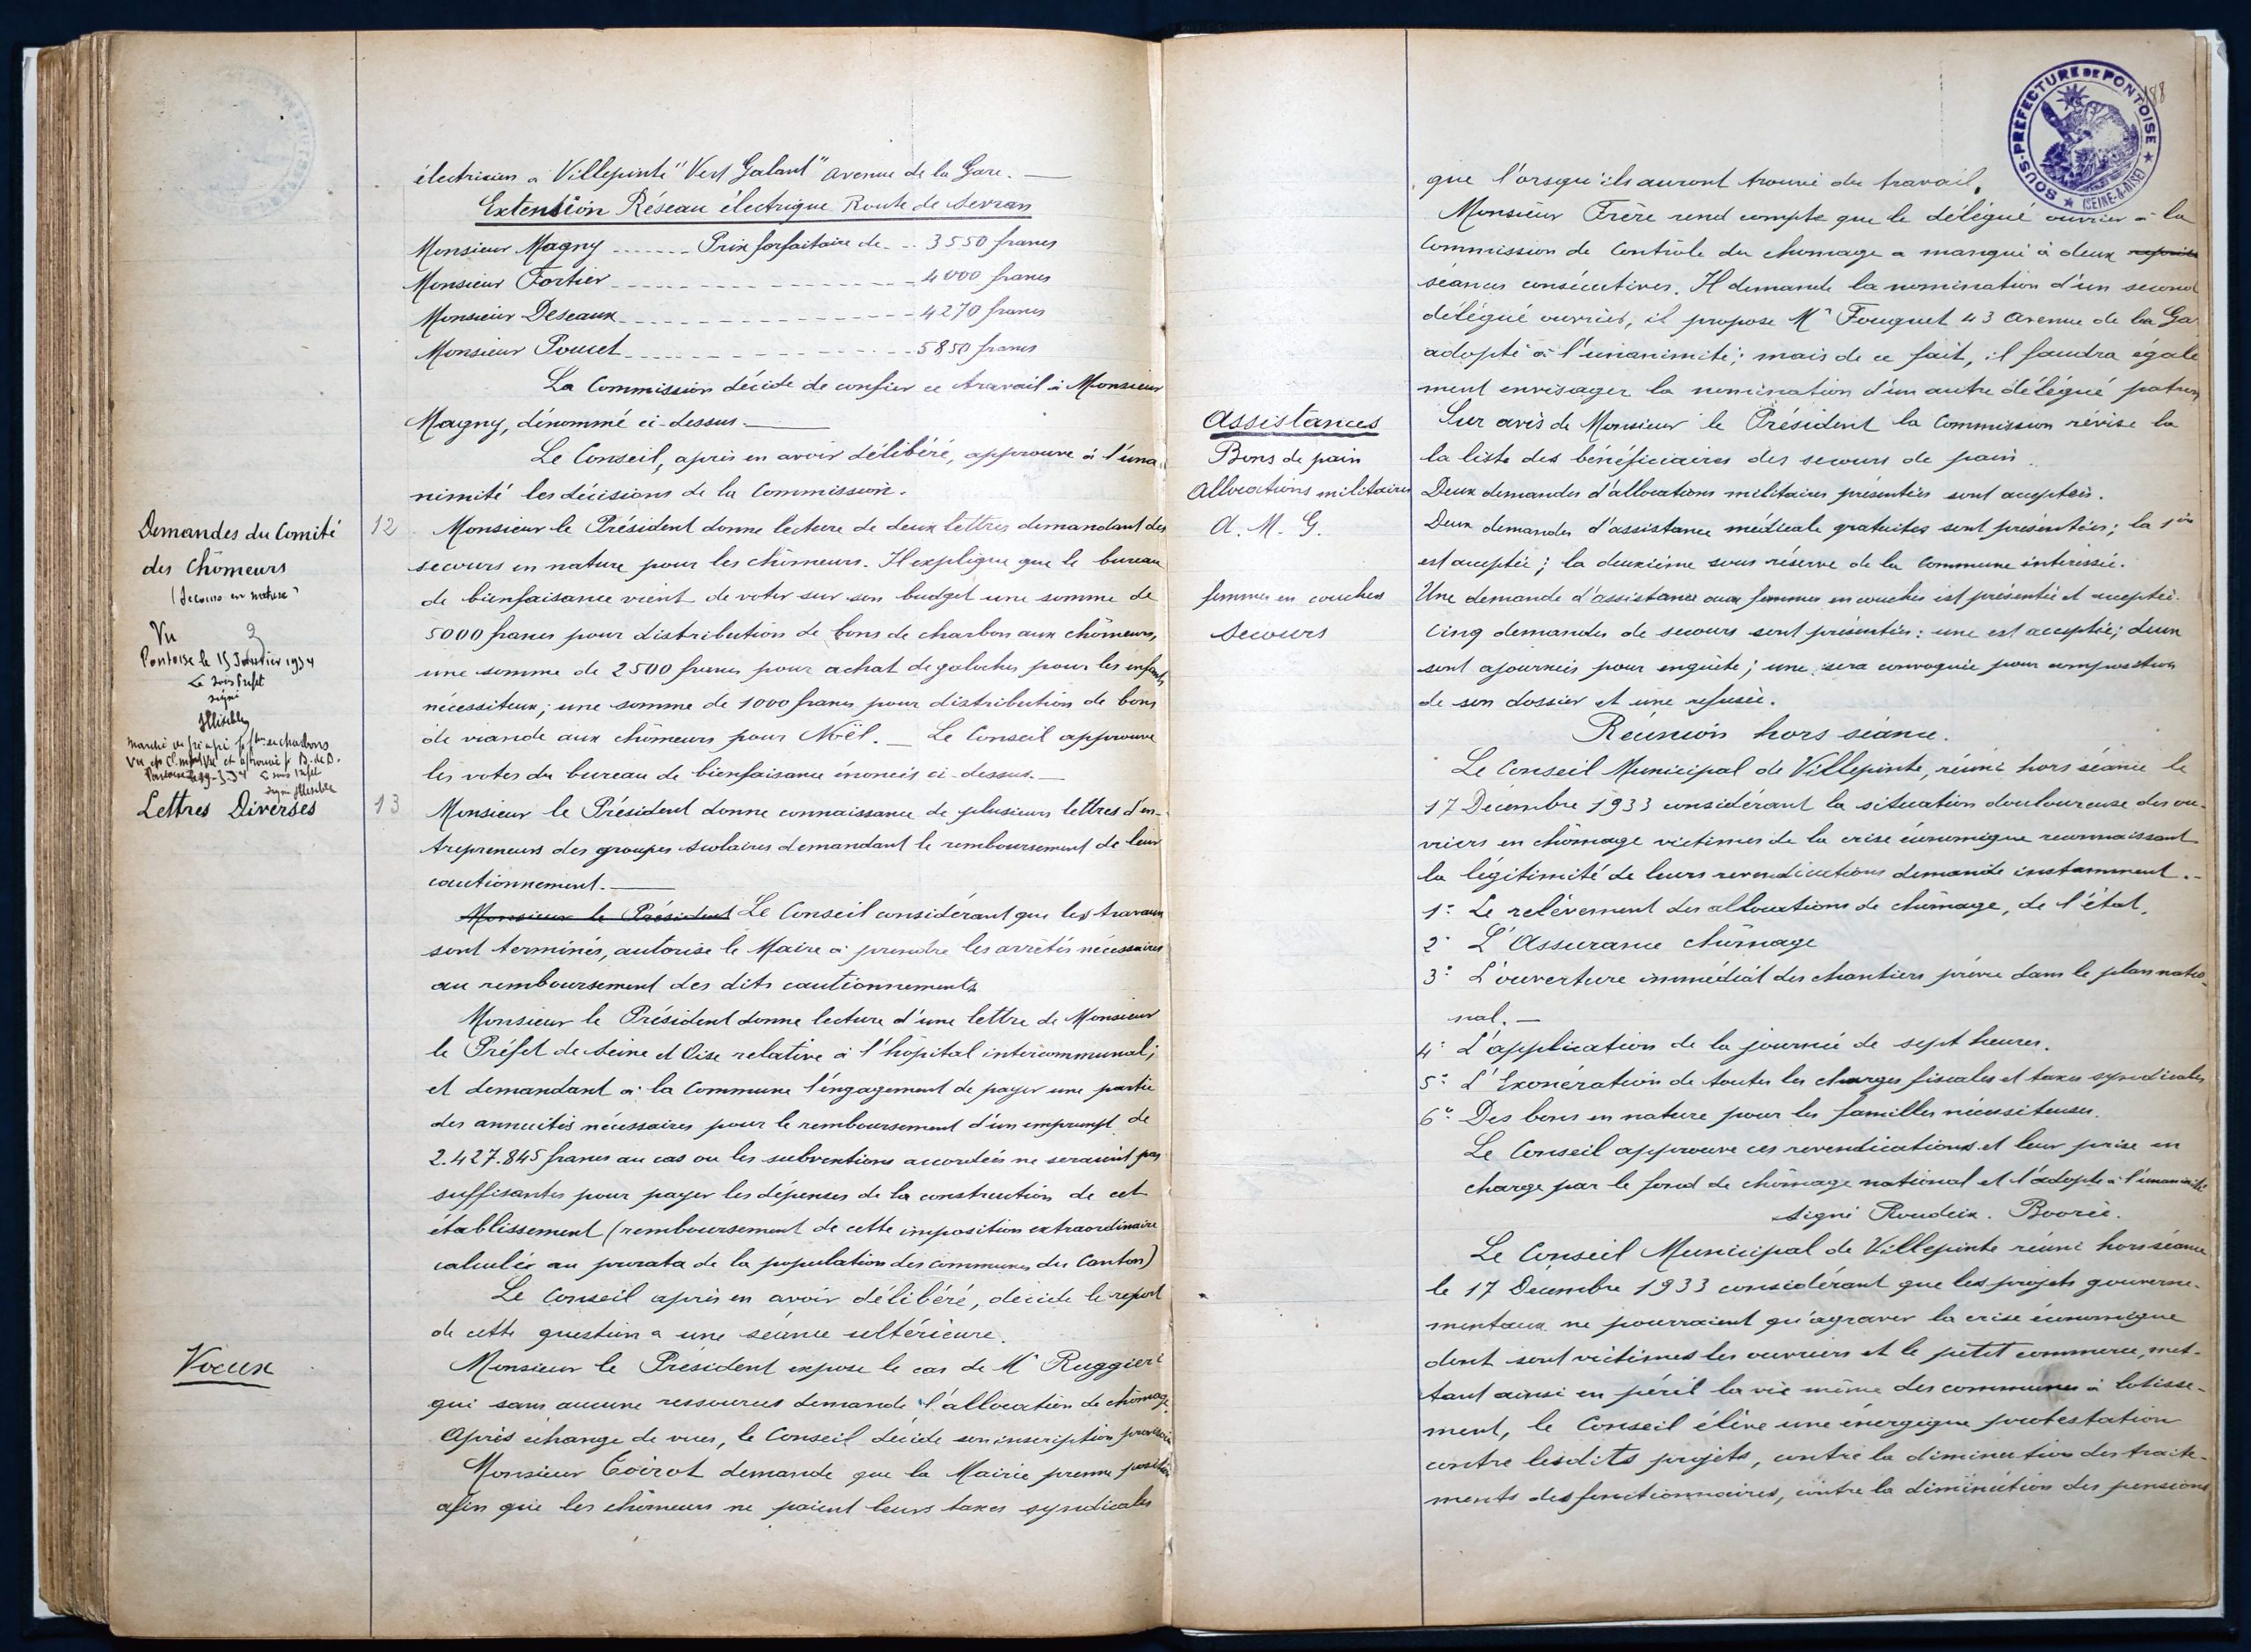 électricien a Villepinte "Vert Galant" avenue de la Gare. —
Extension Réseau électrique Route de Sevran
Monsieur Magny ....... Prix forfaitaire de ... 3550 francs
Monsieur Fortier - - - - - - - - 4000 francs
Monsieur Deseaux - - - - - - - - 4270 francs
Monsieur Poucet - - - - - - - - 5850 francs
La Commission décide de confier ce travail à Monsieur
Magny, dénommé ci-dessus. —
Le Conseil, après en avoir délibéré, approuve à l'una
nimité les décisions de la Commission.
Demandes du Comité
des Chômeurs
(Secours en nature)
Vu
Pontoise le 15 Janvier 1934
Le Sous Préfet
signé
Illisible
Lettres Diverses
Voeux
12 Monsieur le Président donne lecture de deux lettres demandant des
secours en nature pour les chômeurs. Il explique que le bureau
de bienfaisance vient de voter sur son budget une somme de
5000 francs pour distribution de bons de charbon aux chômeurs,
une somme de 2500 francs pour achat de galoches pour les enfants
nécessiteux; une somme de 1000 francs pour distribution de bons
de viande aux chômeurs pour Noël. — Le Conseil approuve
les votes du bureau de bienfaisance énoncés ci-dessus. —
13 Monsieur le Président donne connaissance de plusieurs lettres d'en-
trepreneurs des groupes scolaires demandant le remboursement de leur
cautionnement. —
Monsieur le Président Le Conseil considérant que les travaux
sont terminés, autorise le Maire à prendre les arrêtés nécessaires
au remboursement des dits cautionnements
Monsieur le Président donne lecture d'une lettre de Monsieur
le Préfet de Seine et Oise relative à l'hôpital intercommunal;
et demandant à la Commune l'engagement de payer une partie
des annuités nécessaires pour le remboursement d'un emprunt de
2.427.845 francs au cas ou les subventions accordées ne seraient pas
suffisantes pour payer les dépenses de la construction de cet
établissement (remboursement de cette imposition extraordinaire
calculée au prorata de la population des communes du Canton)
Le Conseil après en avoir délibéré, décide le report
de cette question a une séance ultérieure.
Monsieur le Président expose le cas de Mr Ruggieri
qui sans aucune ressources demande l'allocation de chômage.
Après échange de vues, le Conseil décide son inscription provisoire
Monsieur Coirot demande que la Mairie prenne position
afin que les chômeurs ne paient leurs taxes syndicales
SOUS-PREFECTURE DE PONTOISE
(SEINE-&-OISE)
188
que l'orsqu'ils auront trouvé du travail.
Monsieur Frère rend compte que le délégué ouvrier à la
Commission de Contrôle du chomage a manqué à deux
séances consécutives. Il demande la nomination d'un second
délégué ouvrier, il propose Mr Fouquet 43 avenue de la Ga
adopté à l'unanimité; mais de ce fait, il faudra égale
ment envisager la nomination d'un autre délégué patron
Assistances
Bons de pain
Allocations militaires
A. M. G.
femmes en couches
Secours
Sur avis de Monsieur le Président la Commission révise la
la liste des bénéficiaires des secours de pain.
Deux demandes d'allocations militaires présentées sont acceptées.
Deux demandes d'assistance médicale gratuites sont présentées; la 1ère
est acceptée; la deuxième sous réserve de la Commune intéressée.
Une demande d'assistance aux femmes en couches est présentée et acceptée.
Cinq demandes de secours sont présentées: une est acceptée; deux
sont ajournées pour enquête; une sera convoquée pour composition
de son dossier et une refusée.
Réunion hors séance.
Le Conseil Municipal de Villepinte, réuni hors séance le
17 Décembre 1933 considérant la situation douloureuse des ou-
vriers en chômage victimes de la crise économique reconnaissant
la légitimité de leurs revendications demande instamment. -
1° Le relèvement des allocations de chômage, de l'état.
2° L'Assurance chômage
3° L'ouverture immédiat des chantiers prévu dans le plan natio-
nal. —
4° L'application de la journée de sept heures.
5° L'Exonération de toutes les charges fiscales et taxes syndicales
6° Des bons en nature pour les familles nécessiteuses.
Le Conseil approuve ces revendications et leur prise en
charge par le fond de chômage national et l'adopte à l'unanimité
Signé Roudeix. Boorée.
Le Conseil Municipal de Villepinte réuni hors séance
le 17 Décembre 1933 considérant que les projets gouverne-
mentaux ne pourraient qu'agraver la crise économique
dont sont victimes les ouvriers et le petit commerce, met-
tant ainsi en péril la vie même des communes à lotisse-
ment, le Conseil élève une énergique protestation
contre lesdits projets, contre la diminution des traite-
ments des fonctionnaires, contre la diminution des pensions